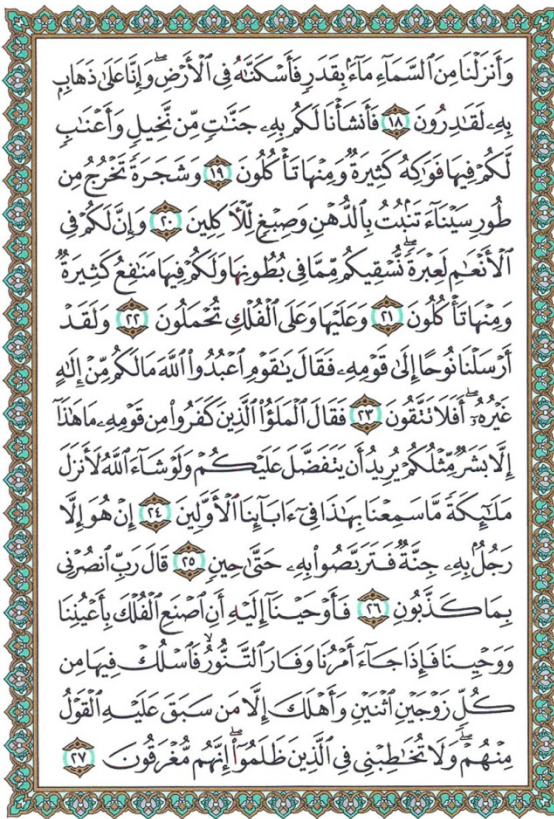 وَأَنزَلْنَا مِنَ ٱلسَّمَآءِ مَآءًۢ بِقَدَرٍ فَأَسْكَنَّٰهُ فِى ٱلْأَرْضِ ۖ وَإِنَّا عَلَىٰ ذَهَابٍۭ
بِهِۦ لَقَٰدِرُونَ ١٨ فَأَنشَأْنَا لَكُم بِهِۦ جَنَّٰتٍ مِّن نَّخِيلٍ وَأَعْنَٰبٍ
لَّكُمْ فِيهَا فَوَٰكِهُ كَثِيرَةٌ وَمِنْهَا تَأْكُلُونَ ١٩ وَشَجَرَةً تَخْرُجُ مِن
طُورِ سَيْنَآءَ تَنۢبُتُ بِٱلدُّهْنِ وَصِبْغٍ لِّلْءَاكِلِينَ ٢٠ وَإِنَّ لَكُمْ فِى
ٱلْأَنْعَٰمِ لَعِبْرَةً ۖ نُّسْقِيكُم مِّمَّا فِى بُطُونِهَا وَلَكُمْ فِيهَا مَنَٰفِعُ كَثِيرَةٌ
وَمِنْهَا تَأْكُلُونَ ٢١ وَعَلَيْهَا وَعَلَى ٱلْفُلْكِ تُحْمَلُونَ ٢٢ وَلَقَدْ
أَرْسَلْنَا نُوحًا إِلَىٰ قَوْمِهِۦ فَقَالَ يَٰقَوْمِ ٱعْبُدُوا۟ ٱللَّهَ مَا لَكُم مِّنْ إِلَٰهٍ
غَيْرُهُۥٓ ۖ أَفَلَا تَتَّقُونَ ٢٣ فَقَالَ ٱلْمَلَؤُا۟ ٱلَّذِينَ كَفَرُوا۟ مِن قَوْمِهِۦ مَا هَٰذَآ
إِلَّا بَشَرٌ مِّثْلُكُمْ يُرِيدُ أَن يَتَفَضَّلَ عَلَيْكُمْ وَلَوْ شَآءَ ٱللَّهُ لَأَنزَلَ
مَلَٰٓئِكَةً مَّا سَمِعْنَا بِهَٰذَا فِىٓ ءَابَآئِنَا ٱلْأَوَّلِينَ ٢٤ إِنْ هُوَ إِلَّا
رَجُلٌۢ بِهِۦ جِنَّةٌ فَتَرَبَّصُوا۟ بِهِۦ حَتَّىٰ حِينٍ ٢٥ قَالَ رَبِّ ٱنصُرْنِى
بِمَا كَذَّبُونِ ٢٦ فَأَوْحَيْنَآ إِلَيْهِ أَنِ ٱصْنَعِ ٱلْفُلْكَ بِأَعْيُنِنَا
وَوَحْيِنَا فَإِذَا جَآءَ أَمْرُنَا وَفَارَ ٱلتَّنُّورُ ۙ فَٱسْلُكْ فِيهَا مِن
كُلٍّ زَوْجَيْنِ ٱثْنَيْنِ وَأَهْلَكَ إِلَّا مَن سَبَقَ عَلَيْهِ ٱلْقَوْلُ
مِنْهُمْ ۖ وَلَا تُخَٰطِبْنِى فِى ٱلَّذِينَ ظَلَمُوٓا۟ ۖ إِنَّهُم مُّغْرَقُونَ ٢٧